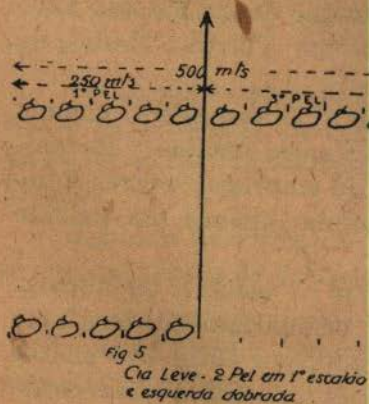 500 m/s
250 m/s
1º PEL 3º PEL
Fig 5
Cia Leve - 2 Pel em 1º escalão
e esquerda dobrada